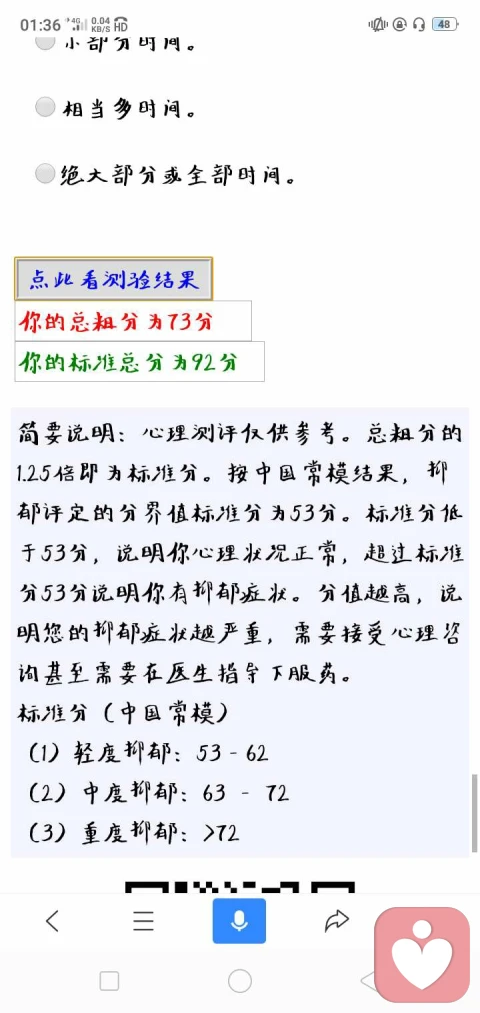 01:36 4G 0.04 KB/S HD 48
小部分时间。
相当多时间。
绝大部分或全部时间。
点此看测验结果
你的总粗分为73分
你的标准总分为92分
简要说明：心理测评仅供参考。总粗分的
1.25倍即为标准分。按中国常模结果，抑
郁评定的分界值标准分为53分。标准分低
于53分，说明你心理状况正常，超过标准
分53分说明你有抑郁症状。分值越高，说
明您的抑郁症状越严重，需要接受心理咨
询甚至需要在医生指导下服药。
标准分（中国常模）
（1）轻度抑郁：53 - 62
（2）中度抑郁：63 - 72
（3）重度抑郁：>72